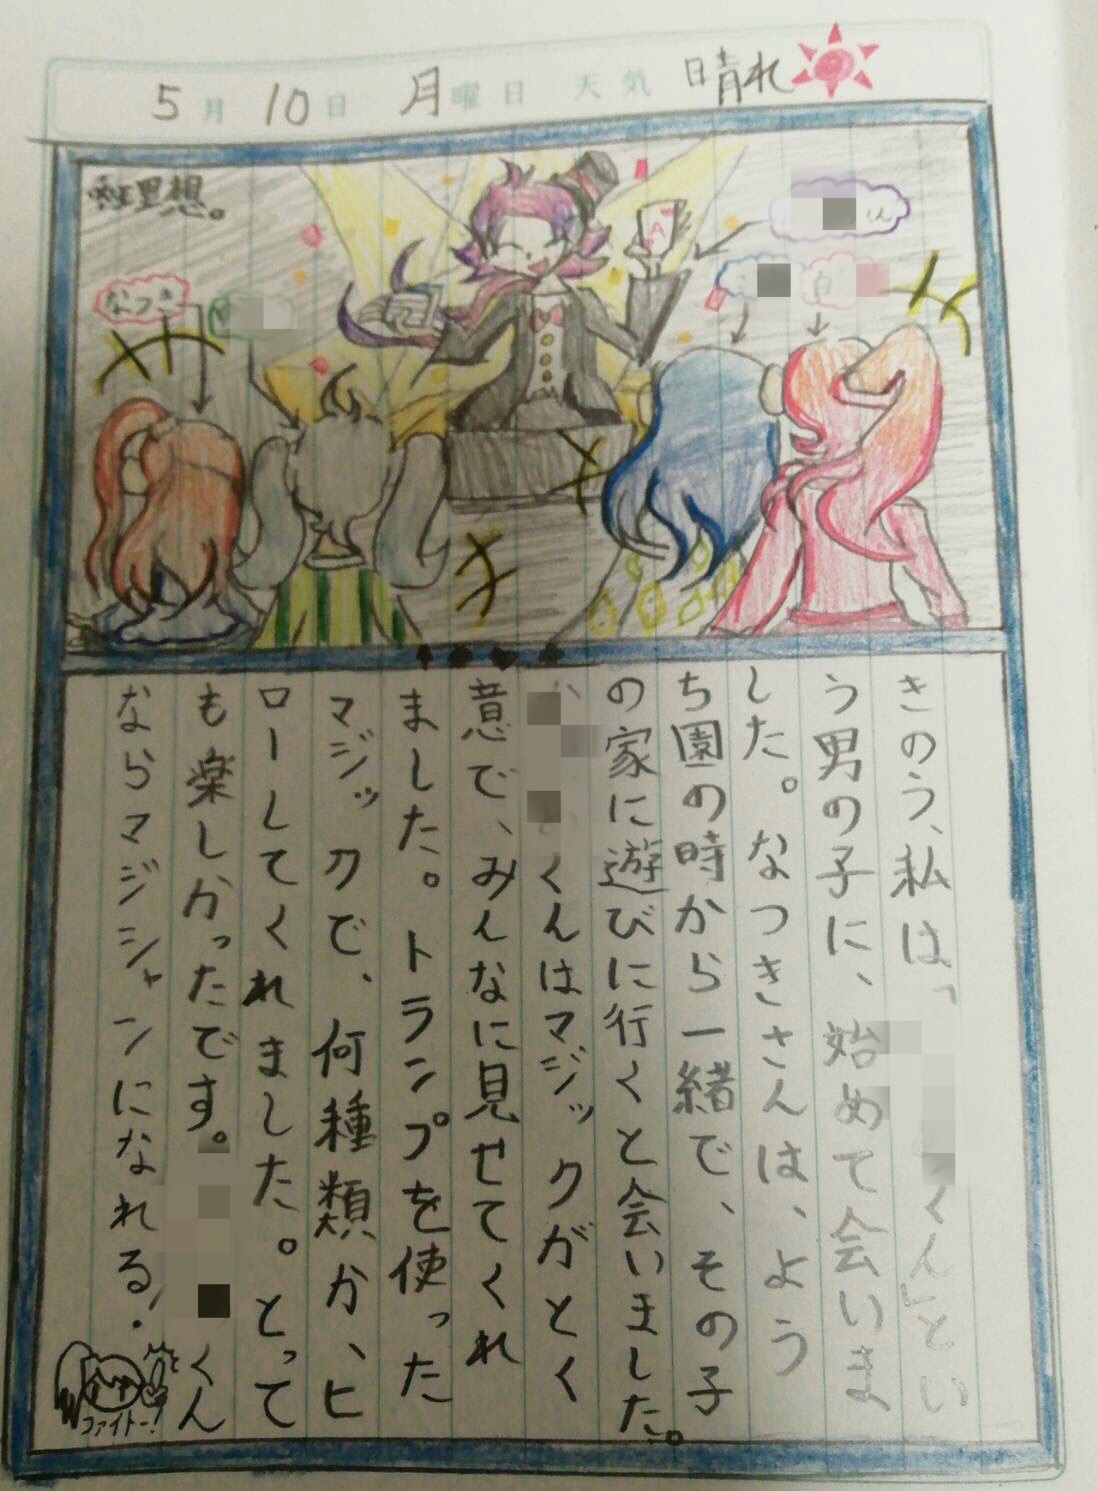 5月10日 月曜日 天気 晴れ
※理想。
なつき
くん
か
A
きのう、私は、「くん」とい
う男の子に、始めて会いま
した。なつきさんは、よう
ち園の時から一緒で、その子
の家に遊びに行くと会いました。
くんはマジックがとく
意で、みんなに見せてくれ
ました。トランプを使った
マジックで、何種類か、ヒ
ローしてくれました。とって
も楽しかったです。くん
ならマジシャンになれる!
ファイトー!